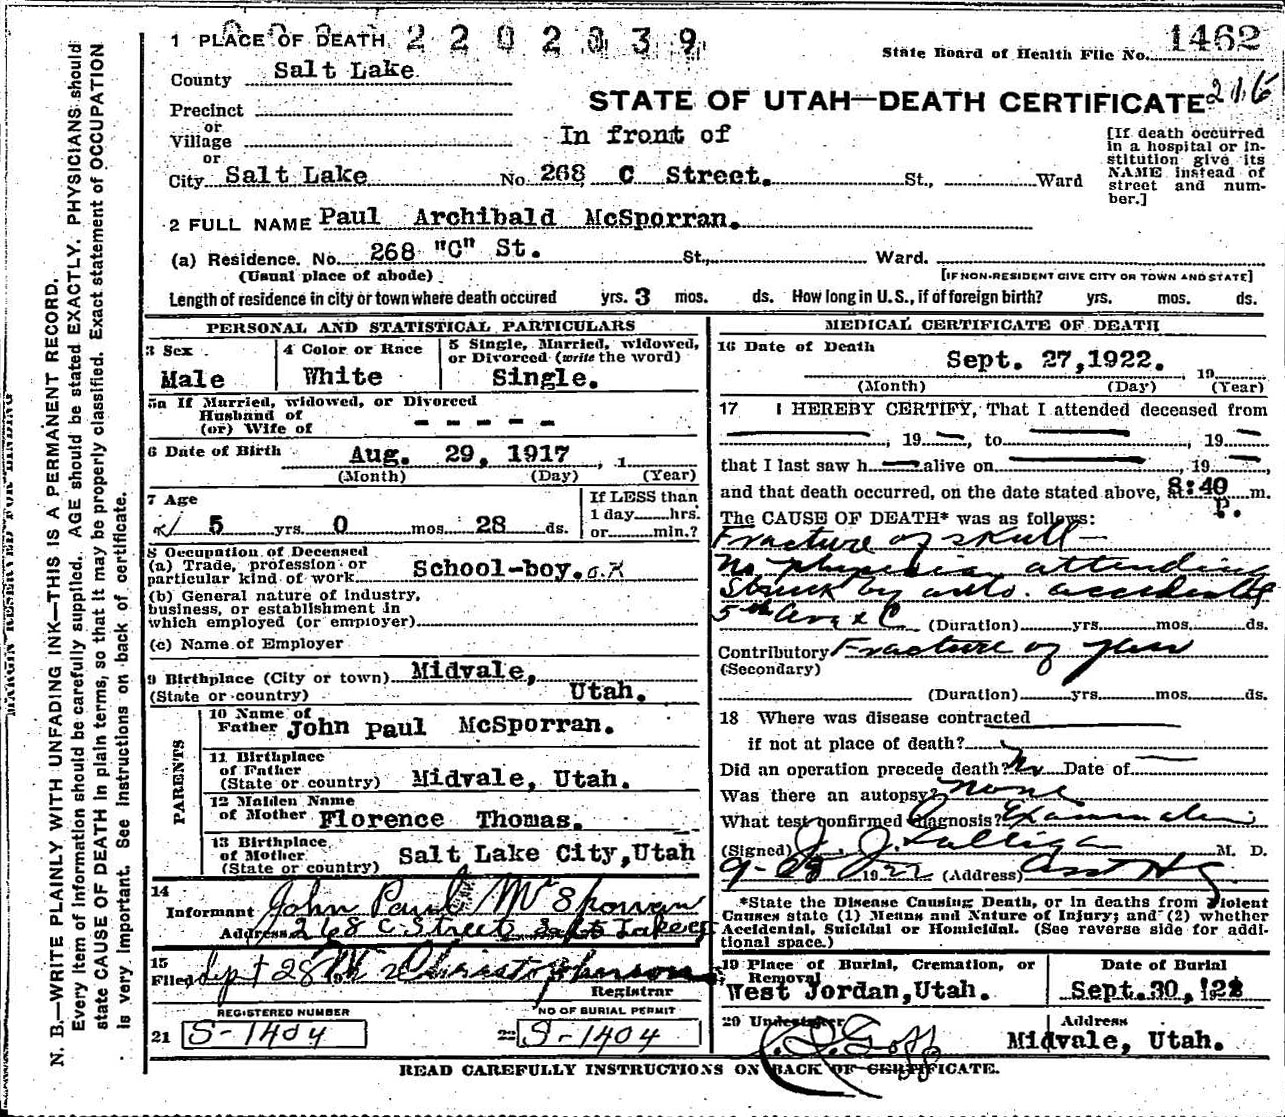 1 PLACE OF DEATH 2202039
State Board of Health File No. 1462
County Salt Lake
STATE OF UTAH—DEATH CERTIFICATE 216
Precinct
or
Village
In front of
or
City Salt Lake No. 268 C Street. St., Ward
[If death occurred in a hospital or in-
stitution give its
NAME instead of
street and num-
ber.]
2 FULL NAME Paul Archibald McSporran.
(a) Residence. No. 268 "C" St. St., Ward.
(Usual place of abode) [IF NON-RESIDENT GIVE CITY OR TOWN AND STATE]
Length of residence in city or town where death occured yrs. 3 mos. ds. How long in U.S., if of foreign birth? yrs. mos. ds.
PERSONAL AND STATISTICAL PARTICULARS
3 Sex
Male
4 Color or Race
White
5 Single, Married, widowed,
or Divorced (write the word)
Single.
5a If Married, widowed, or Divorced
Husband of
(or) Wife of - - - - -
6 Date of Birth Aug. 29, 1917, 1
(Month) (Day) (Year)
7 Age
5 yrs. 0 mos. 28 ds.
If LESS than
1 day hrs.
or min.?
8 Occupation of Deceased
(a) Trade, profession or
particular kind of work School-boy. O.K
(b) General nature of industry,
business, or establishment in
which employed (or employer)
(c) Name of Employer
9 Birthplace (City or town) Midvale,
(State or country) Utah.
PARENTS
10 Name of
Father John Paul McSporran.
11 Birthplace
of Father
(State or country) Midvale, Utah.
12 Maiden Name
of Mother Florence Thomas.
13 Birthplace
of Mother
(State or country) Salt Lake City, Utah
14
Informant John Paul McSporran
Address 268 C Street Salt Lake City
15
Filed Sept 28
Registrar
REGISTERED NUMBER
21 S-1404
NO OF BURIAL PERMIT
22 S-1404
MEDICAL CERTIFICATE OF DEATH
16 Date of Death
Sept. 27, 1922. 19
(Month) (Day) (Year)
17 I HEREBY CERTIFY, That I attended deceased from
, 19 , to , 19
that I last saw h alive on , 19
and that death occurred, on the date stated above, at 8:40 m.
P.
The CAUSE OF DEATH* was as follows:
Fracture of skull—
No physician attending
Struck by auto. accidental
5th Ave & C (Duration) yrs. mos. ds.
Contributory Fracture of
(Secondary)
(Duration) yrs. mos. ds.
18 Where was disease contracted
if not at place of death?
Did an operation precede death? No Date of
Was there an autopsy? None
What test confirmed diagnosis? Examination
(Signed) J. J. Galligan M. D.
9-28 1922 (Address)
*State the Disease Causing Death, or in deaths from Violent
Causes state (1) Means and Nature of Injury; and (2) whether
Accidental, Suicidal or Homicidal. (See reverse side for addi-
tional space.)
19 Place of Burial, Cremation, or
Removal
West Jordan, Utah.
Date of Burial
Sept. 30, '22
20 Undertaker
Goff
Address
Midvale, Utah.
READ CAREFULLY INSTRUCTIONS ON BACK OF CERTIFICATE.
MARGIN RESERVED FOR BINDING
N. B.—WRITE PLAINLY WITH UNFADING INK—THIS IS A PERMANENT RECORD.
Every item of Information should be carefully supplied. AGE should be stated EXACTLY. PHYSICIANS should
state CAUSE OF DEATH in plain terms, so that it may be properly classified. Exact statement of OCCUPATION
is very important. See Instructions on back of certificate.